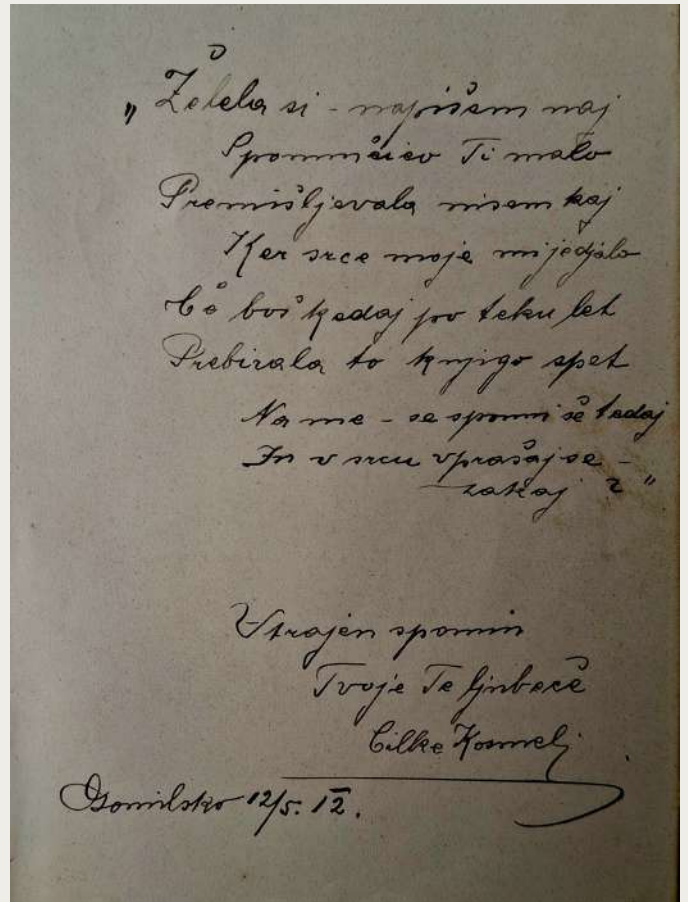 „Želela si - napišem naj
Spominčico Ti malo
Premišljevala nisem kaj
Ker srce moje mi je djalo
Če boš kedaj po teku let
Prebirala to knjigo spet
Na me - se spomni še tedaj
In v srcu vprašaj se -
zakaj ?"
V trajen spomin
Tvoje Te ljubeče
Cilke Kosmelj
Gomilsko 12/5. 12.